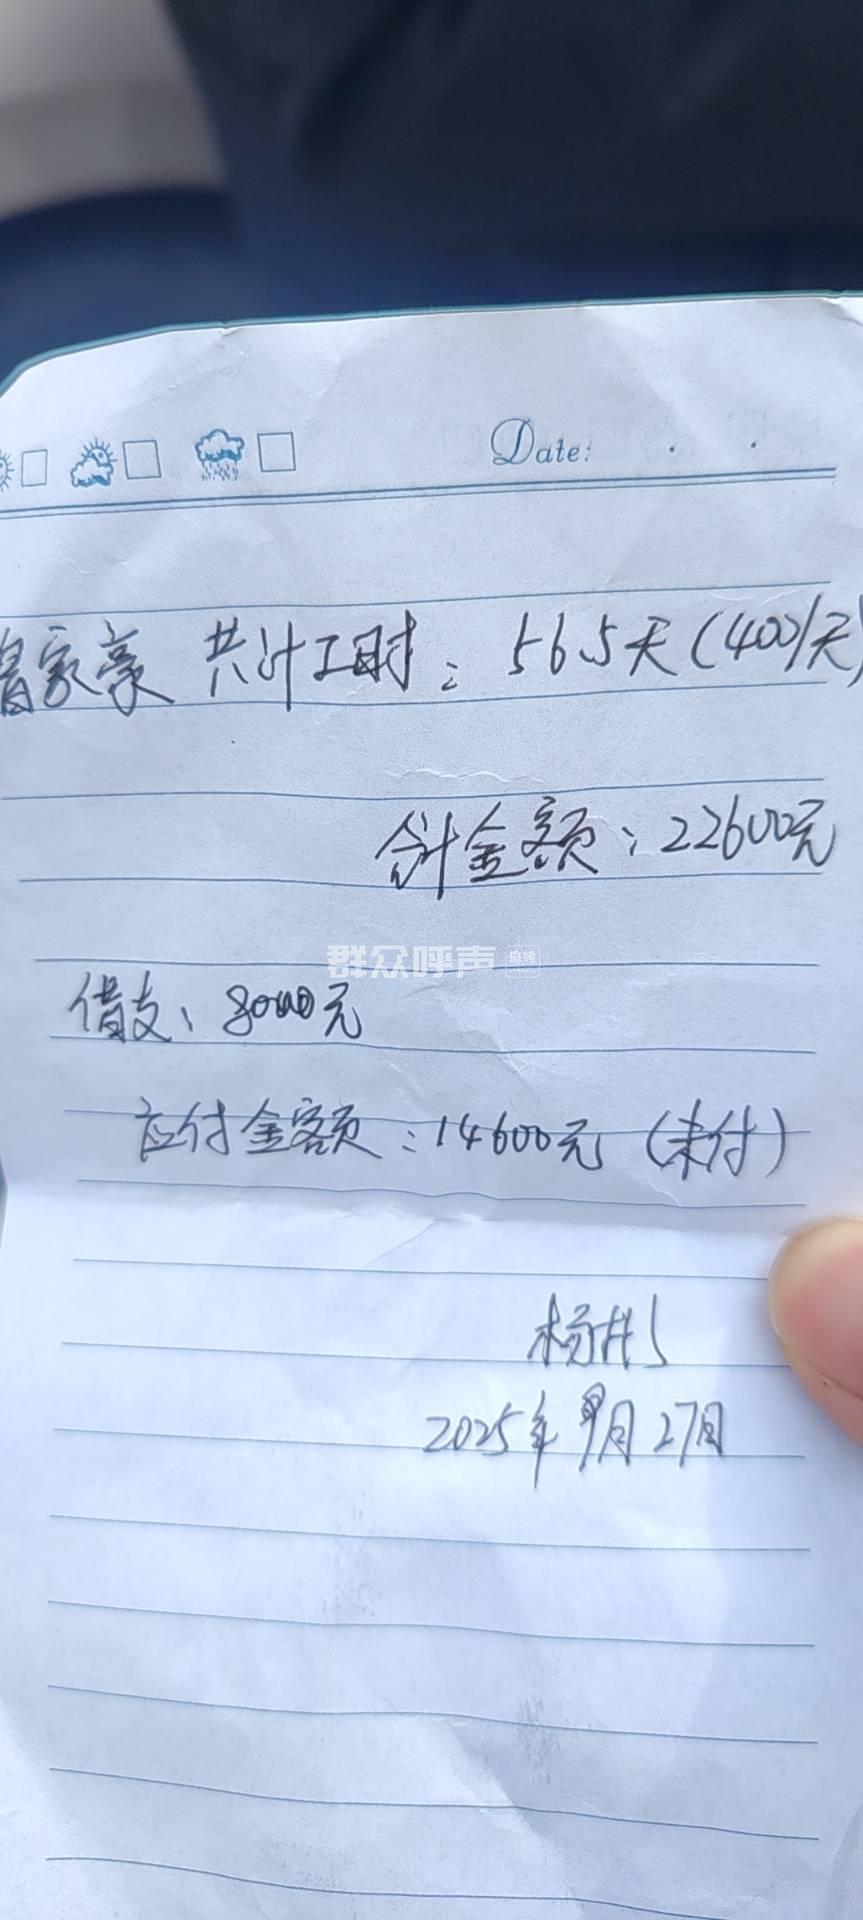 Date:
曾家豪 共计工时：56.5天(400/天)
合计金额：22600元
群众呼声
借支：8000元
应付金额：14600元（未付）
2025年9月27日